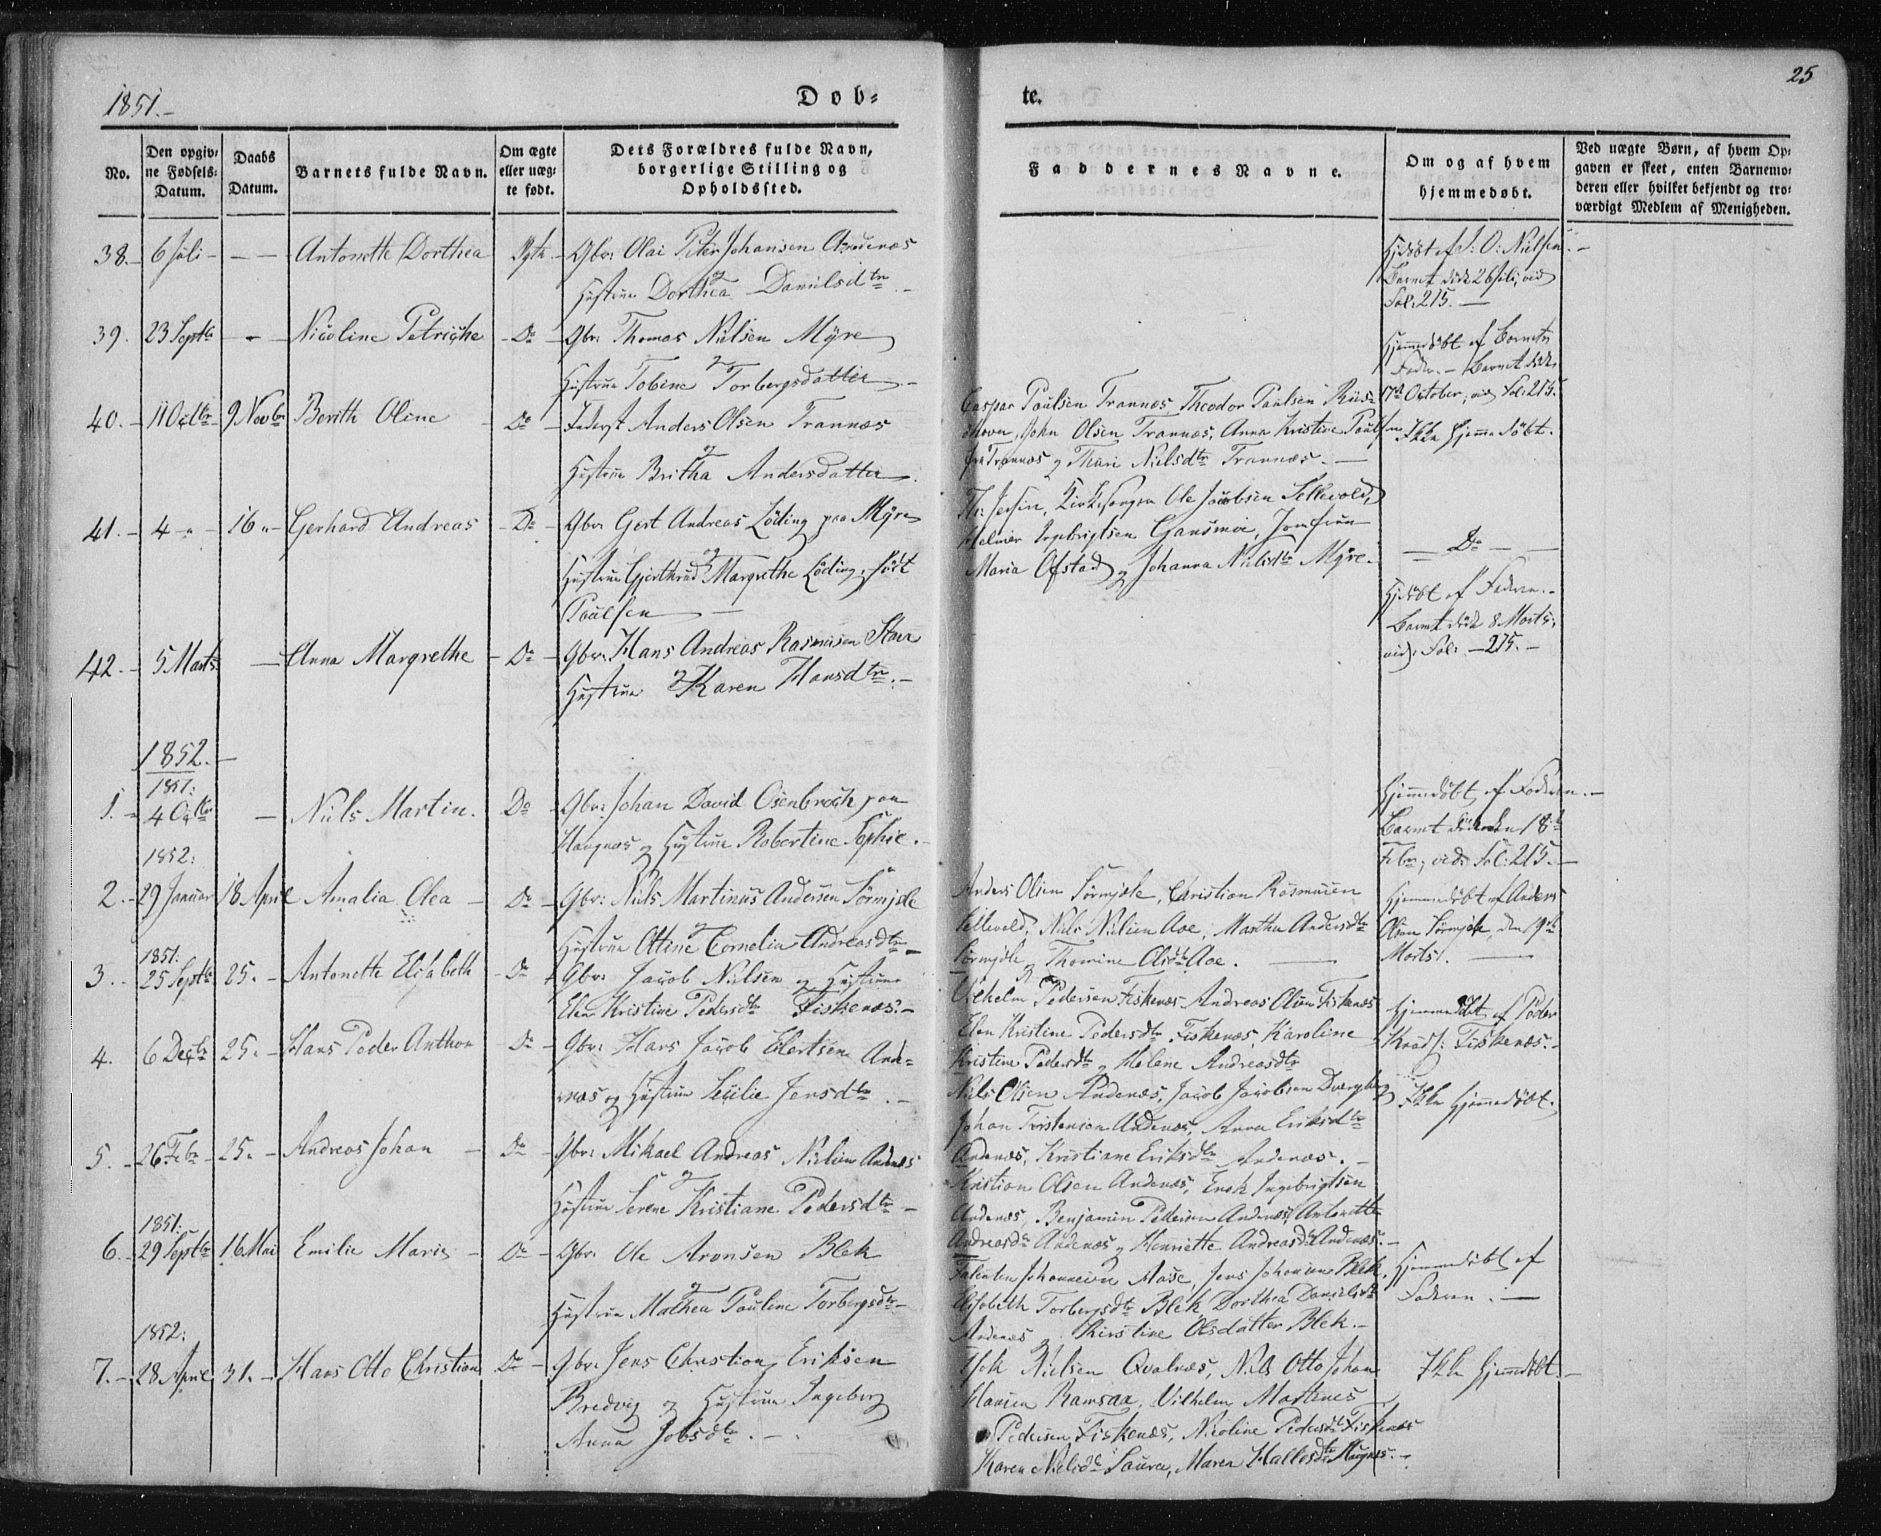 1851.-
Dob-
te.
25
No.
Den opgiv-
ne Fødsels-
Datum.
Daabs
Datum.
Barnets fulde Navn.
Om ægte
eller uæg-
te født.
Dets Forældres fulde Navn,
borgerlige Stilling og
Opholdssted.
Faddernes Navne.
Om og af hvem
hjemmedøbt.
Ved uægte Børn, af hvem Op-
gaven er skeet, enten Barnemo-
deren eller hvilket bekjendt og tro-
værdigt Medlem af Menigheden.
38.- 6 Juli - - - Antonette Dorthea Ægte - Gbr: Olai Peter Johansen
og
Hustrue Dorthea Danielsdtr -
Hjdøbt af J: O: Nielsen. -
Barnet døde 26 Juli, vid
Fol: 215. -
39. 23 Septbr - Nicoline Petrikke - Do - Gbr: Thomas Nielsen Myre
og
Hustrue Tobine Torbergsdatter -
Hjemmedøbt af Barnets
Fader. - Barnet døde
17de October, vid Fol: 215.
40. - 11 Octbr 9 Novbr Berith Oline - Do - Anders Olsen Trannes
og
Hustrue Britha Andersdatter.
Caspar Paulsen Trannæs, Theodor Paulsen Riis-
John Olsen Trannæs, Anna Kristine Paulsen
fra Trannæs og Nielsdtr Trannæs. -
Ikke Hjemmedøbt.
41. - 4 " - 16 " - Gerhard Andreas - Do - Gbr: Gert Andreas Løding paa Myre
og
Hustrue Gjerthrud Margrethe Løding, født
Paulsen -
Kirkesanger Ole Jacobsen Sellevold,
Ingebrigtsen Jomfrue
Maria Ofstad og Johanna Nielsdtr Myre.
- Do -
42. - 5 Marts - Anna Margrethe - Do - Gbr: Hans Andreas Rasmusen
Hustrue og Karen Hansdtr. -
Hjdøbt af Faderen. -
Barnet døde 8 Marts,
vid: Fol: - 215. -
1852. -
1851:
1. - 4 Octbr - Niels Martin. Do - Gbr: Johan David Osenbroch paa
Haugnæs og Hustrue Robertine Sophie. -
Hjemmedøbt af Faderen. -
Barnet døde den 18de
Febr; vide Fol: 215. -
1852:
2. - 29 Januar 18 April Amalia Olea - Do - Gbr: Niels Martinus Andersen Sørmjøle
og
Hustrue Ottine Cornelia Andreasdtr -
Anders Olsen Sørmjøle, Christian Rasmusen
Sellevold, Niels Nielsen Aae, Martha Andersdtr
Sørmjøle og Thomine Olsdtr Aae. -
Hjemmedøbt af Anders
Olsen Sørmjøle, den 9de
Marts. -
1851:
3. - 25 Septbr 25. - Antonette Elisabeth - Do - Gbr: Jacob Nielsen og Hustrue
Elen Kristine Pedersdtr Fiskenæs. -
Vilhelm Pedersen Fiskenæs, Andreas Olsen Fiskenæs
Elen Kristine Pedersdtr Fiskenæs, Karoline
Kristine Pedersdtr og Helene Andreasdtr
Hjemmedøbt af Peder
Fiskenæs. -
4. 6 Decbr 25. - Hans Peder Anthon - Do - Gbr: Hans Jacob Elertsen Ande-
næs og Hustrue Cecilie Jensdtr. -
Niels Olsen Andenæs, Jacob Jacobsen Dverberg
Johan Andenæs, Anna Eriksdtr
Andenæs, Kristiane Eriksdtr Andenæs. -
Ikke Hjemmedøbt.
5. - 26 Febr - 25. - Andreas Johan - Do - Gbr: Mikael Andreas Nielsen Andenæs
og
Hustrue Serene Kristiane Pedersdtr -
Kristian Olsen Andenæs, Ingebrigtsen
Andenæs, Benjamin Pedersen Andenæs, Antonette
Andreasdtr Andenæs og Henriette Andreasdtr Andenæs. -
1851:
6. - 29 Septbr 16 Mai Emilie Marie - Do - Gbr: Ole Aronsen Blek
og
Hustrue Mathea Pauline Torbergsdtr -
Johannesen Jens Johansen Blek,
Elisabeth Torbergsdtr Blek, Dorthea Danielsdtr
Andenæs og Kirstine Olsdatter Blek. -
Hjemmedøbt af
Faderen. -
1852:
7. - 28 April 31. - Hans Otto Christian Do - Gbr: Jens Christian Eriksen
Bredvig og Hustrue Ingeborg
Anna Jobsdtr. -
Nielsen Qvalnæs, Niels Otto Johan
Hansen Ramsaa, Vilhelm Martines
Pedersen Fiskenæs, Nicoline Pedersdtr Fiskenæs
Karen Nielsdtr Saura, Maren Hallesdtr Haugnæs. -
Ikke Hjemmedøbt. -